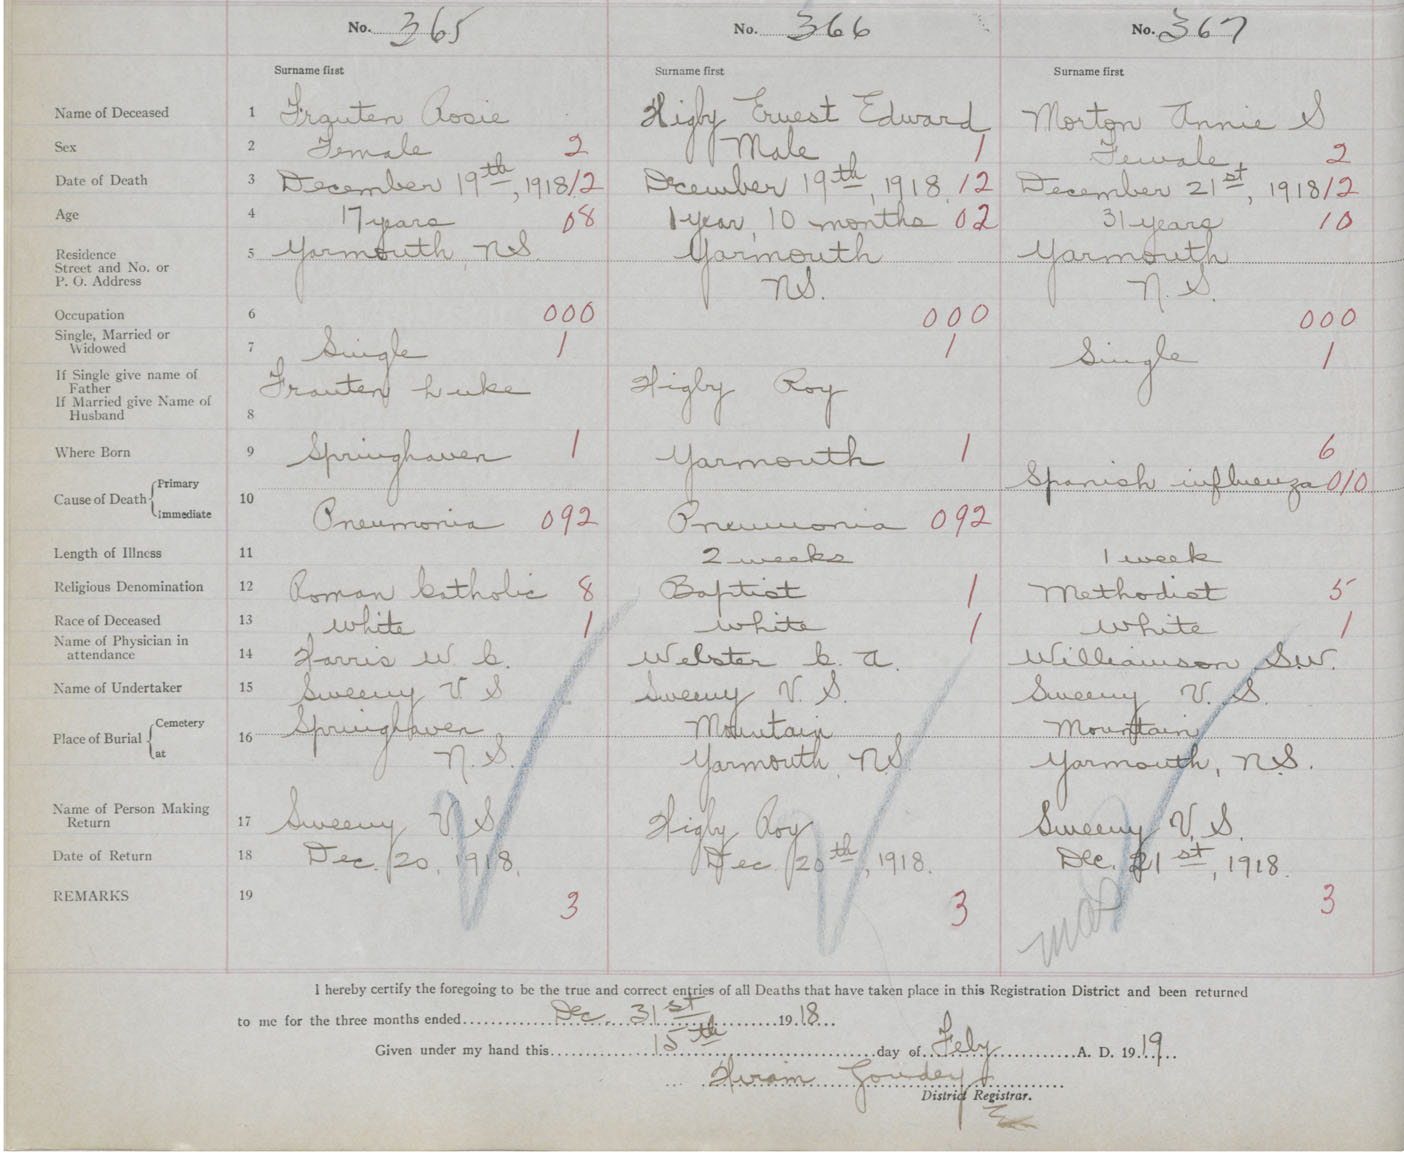 No. 365 No. 366 No. 367
Surname first Surname first Surname first
Name of Deceased 1 Frauten Rosie Higby Ernest Edward Morton Annie S
Sex 2 Female 2 Male 1 Female 2
Date of Death 3 December 19th, 1918 12 December 19th, 1918 12 December 21st, 1918 12
Age 4 17 years 08 1 year, 10 months 02 31 years 10
Residence 5 Yarmouth, N.S. Yarmouth Yarmouth
Street and No. or
P. O. Address N.S. N. S.
Occupation 6 000 000 000
Single, Married or
Widowed 7 Single 1 1 Single 1
If Single give name of
Father Frauten Luke Higby Roy
If Married give Name of
Husband 8
Where Born 9 Springhaven 1 Yarmouth 1 6
Primary Spanish influenza 010
Cause of Death 10
immediate Pneumonia 092 Pneumonia 092
Length of Illness 11 2 weeks 1 week
Religious Denomination 12 Roman Catholic 8 Baptist 1 Methodist 5
Race of Deceased 13 White 1 White 1 White 1
Name of Physician in
attendance 14 Farris W C. Webster C. A. Williamson S.W.
Name of Undertaker 15 Sweeny V. S Sweeny V. S. Sweeny V. S.
Cemetery Springhaven Mountain Mountain
Place of Burial 16
at N. S. Yarmouth, N.S. Yarmouth, N.S.
Name of Person Making
Return 17 Sweeny V. S Higby Roy Sweeny V. S.
Date of Return 18 Dec. 20, 1918. Dec. 20th, 1918. Dec. 21st, 1918.
REMARKS 19 3 3 3
I hereby certify the foregoing to be the true and correct entries of all Deaths that have taken place in this Registration District and been returned
to me for the three months ended Dec. 31st 1918
Given under my hand this 15th day of Feby A. D. 1919
Hiram Goudey
District Registrar.